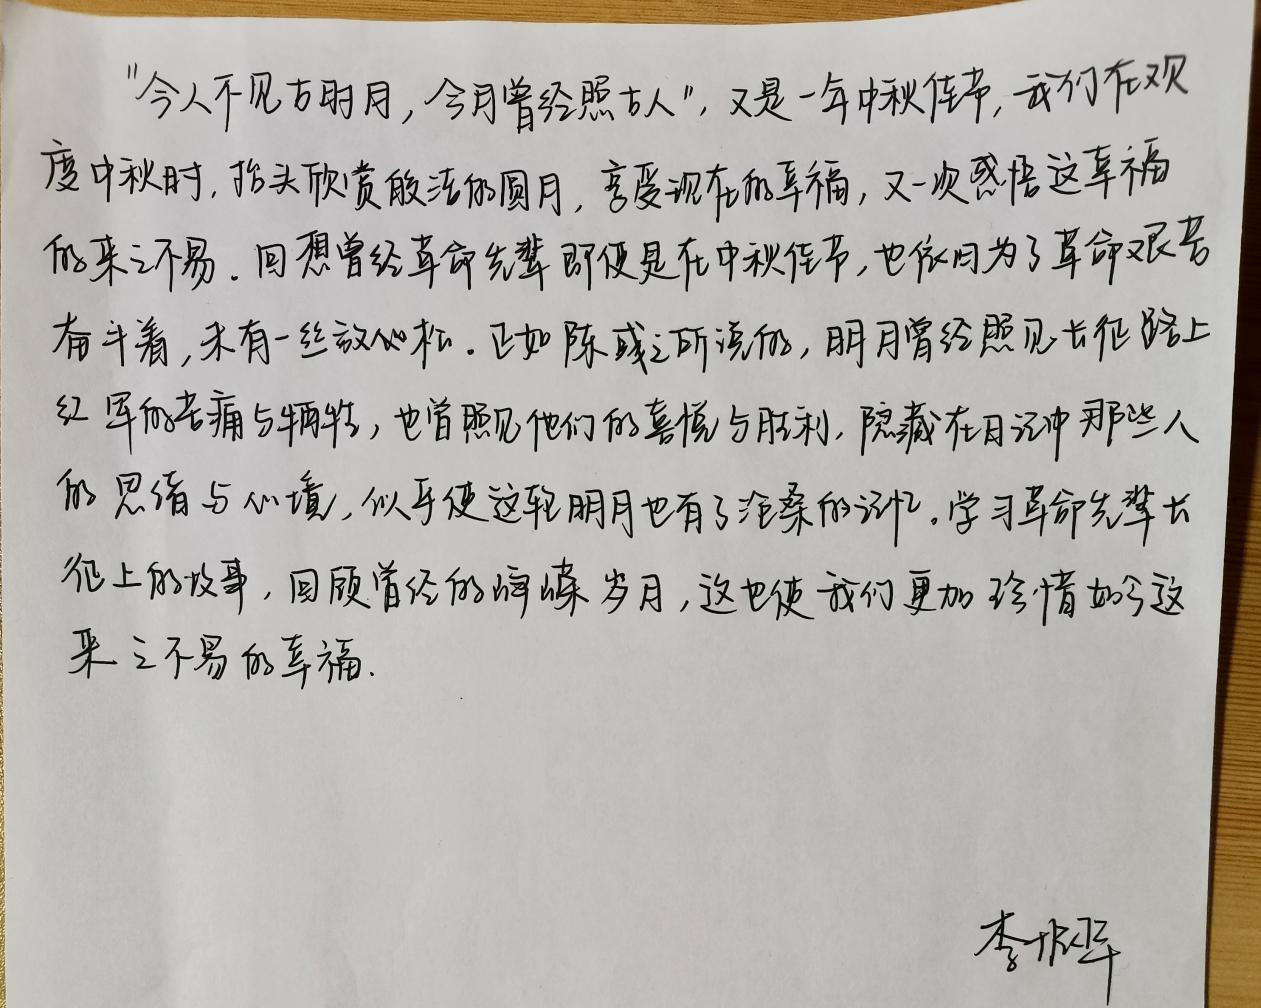 "今人不见古时月，今月曾经照古人"，又是一年中秋佳节，我们在欢
度中秋时，抬头欣赏皎洁的圆月，享受现在的幸福，又一次感悟这幸福
的来之不易．回想曾经革命先辈即便是在中秋佳节，也依旧为了革命艰苦
奋斗着，未有一丝放松．正如陈或之所说的，明月曾经照见长征路上
红军的苦痛与牺牲，也曾照见他们的喜悦与胜利，隐藏在日记中那些人
的思绪与心境，似乎使这轮明月也有了沧桑的记忆。学习革命先辈长
征上的故事，回顾曾经的峥嵘岁月，这也使我们更加珍惜如今这
来之不易的幸福．
李